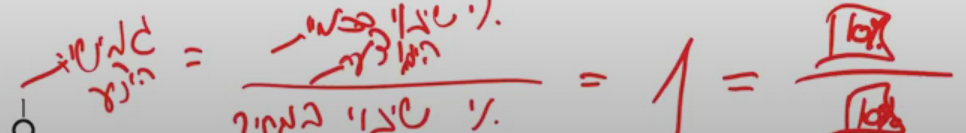 גמישות היצע = % שינוי בכמות המוצעת / % שינוי במחיר = 1 = 10% / 10%